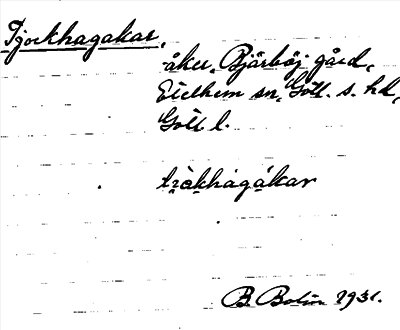 Tjockhagakar,
åker, Bjärböj gård,
Etelhem sn, Gotl. s. hd,
Gotl l.
B. Bolin 1931.